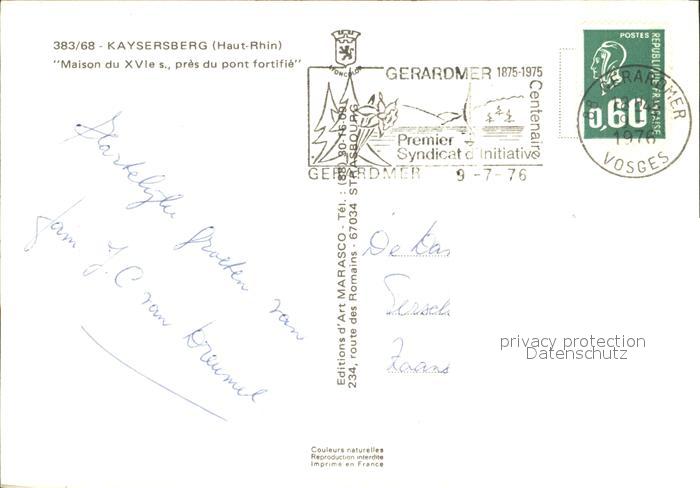 383/68 - KAYSERSBERG (Haut-Rhin)
"Maison du XVIe s., près du pont fortifié"
GERARDMER 1875-1975
Centenaire
Premier
Syndicat d'Initiative
GERARDMER 9-7-76
POSTES
REPUBLIQUE FRANÇAISE
0,60
88 GERARDMER
1976
VOSGES
Hartelijke groeten van
fam J. C van Dreumel
Editions d'Art MARASCO - Tél. : (88) 30-16-09
234, route des Romains - 67034 STRASBOURG
De
privacy protection
Datenschutz
Couleurs naturelles
Reproduction interdite
Imprimé en France